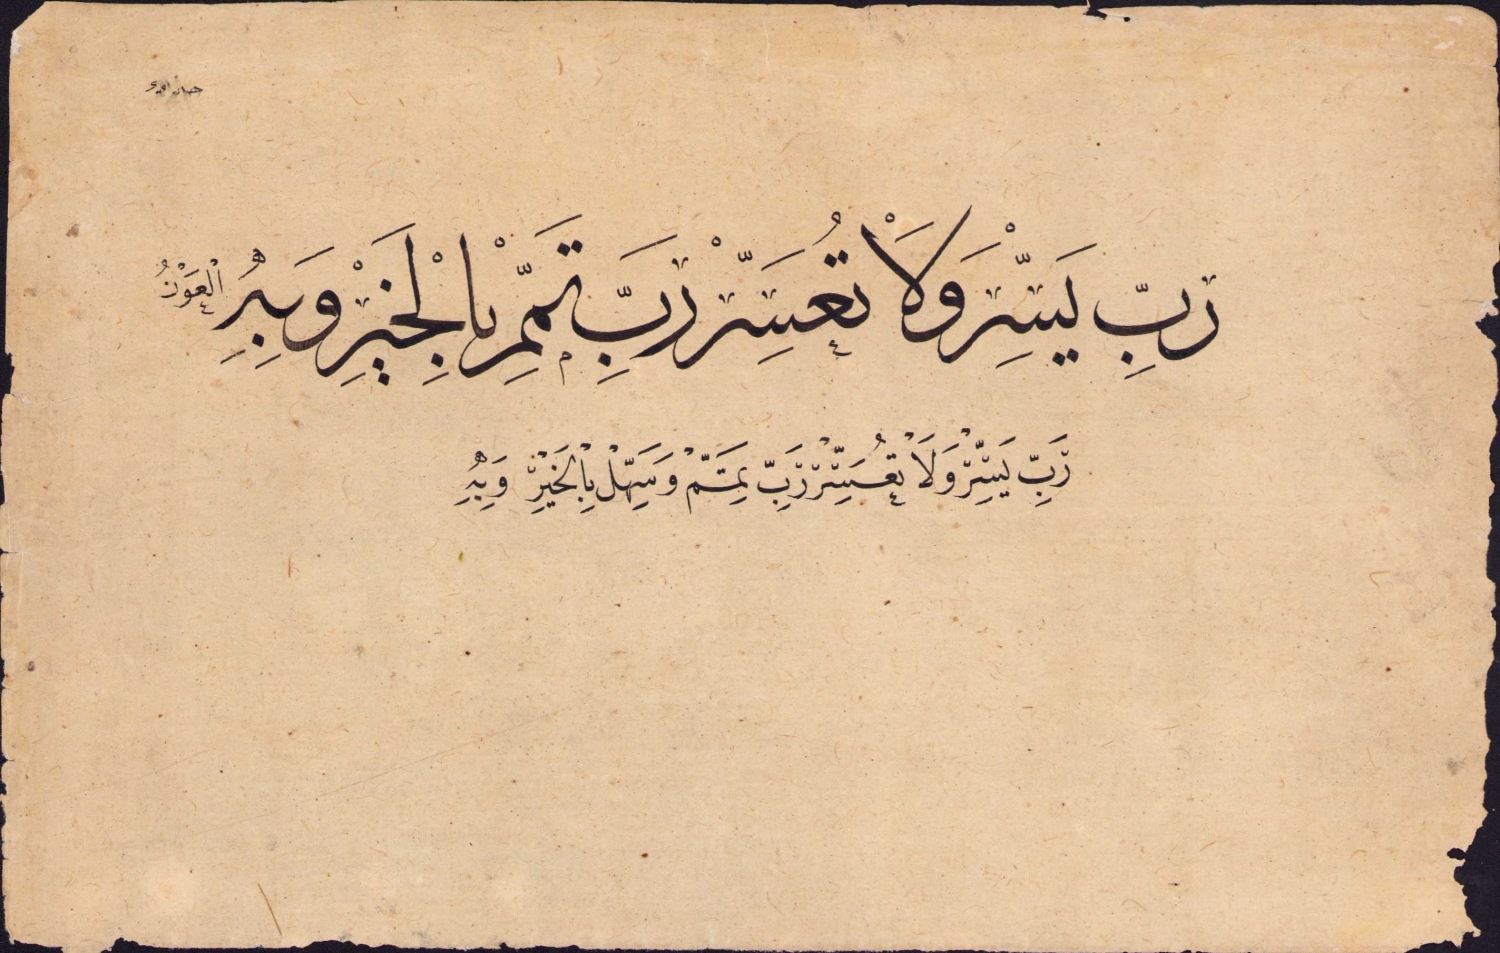 رَبِّ يَسِّرْ وَلَا تُعَسِّرْ رَبِّ تَمِّمْ بِالْخَيْرِ وَبِهِ الْعَوْنُ
رَبِّ يَسِّرْ وَلَا تُعَسِّرْ رَبِّ تَمِّمْ وَسَهِّلْ بِالْخَيْرِ وَبِهِ